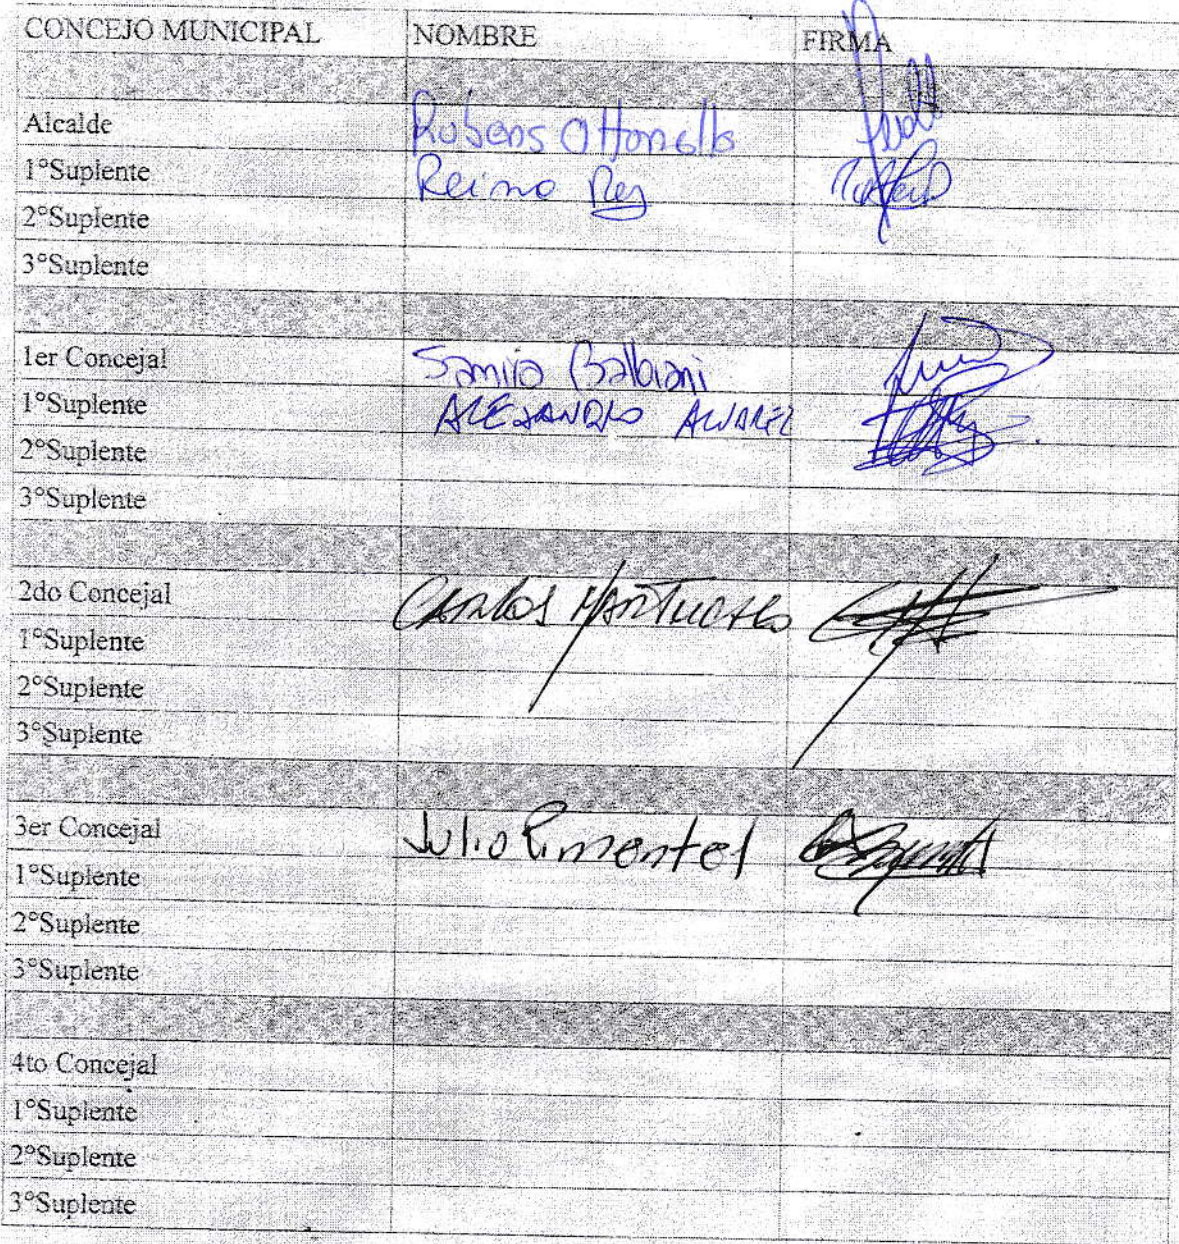 CONCEJO MUNICIPAL NOMBRE FIRMA
Alcalde Rubens Ottonello
1°Suplente Reimo Rey
2°Suplente
3°Suplente
1er Concejal Samira Balbiani
1°Suplente ALEJANDRO ALVAREZ
2°Suplente
3°Suplente
2do Concejal CARLOS
1°Suplente
2°Suplente
3°Suplente
3er Concejal Julio Pimentel
1°Suplente
2°Suplente
3°Suplente
4to Concejal
1°Suplente
2°Suplente
3°Suplente